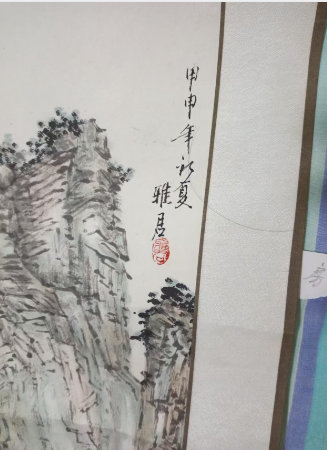 甲申年初夏
雅君